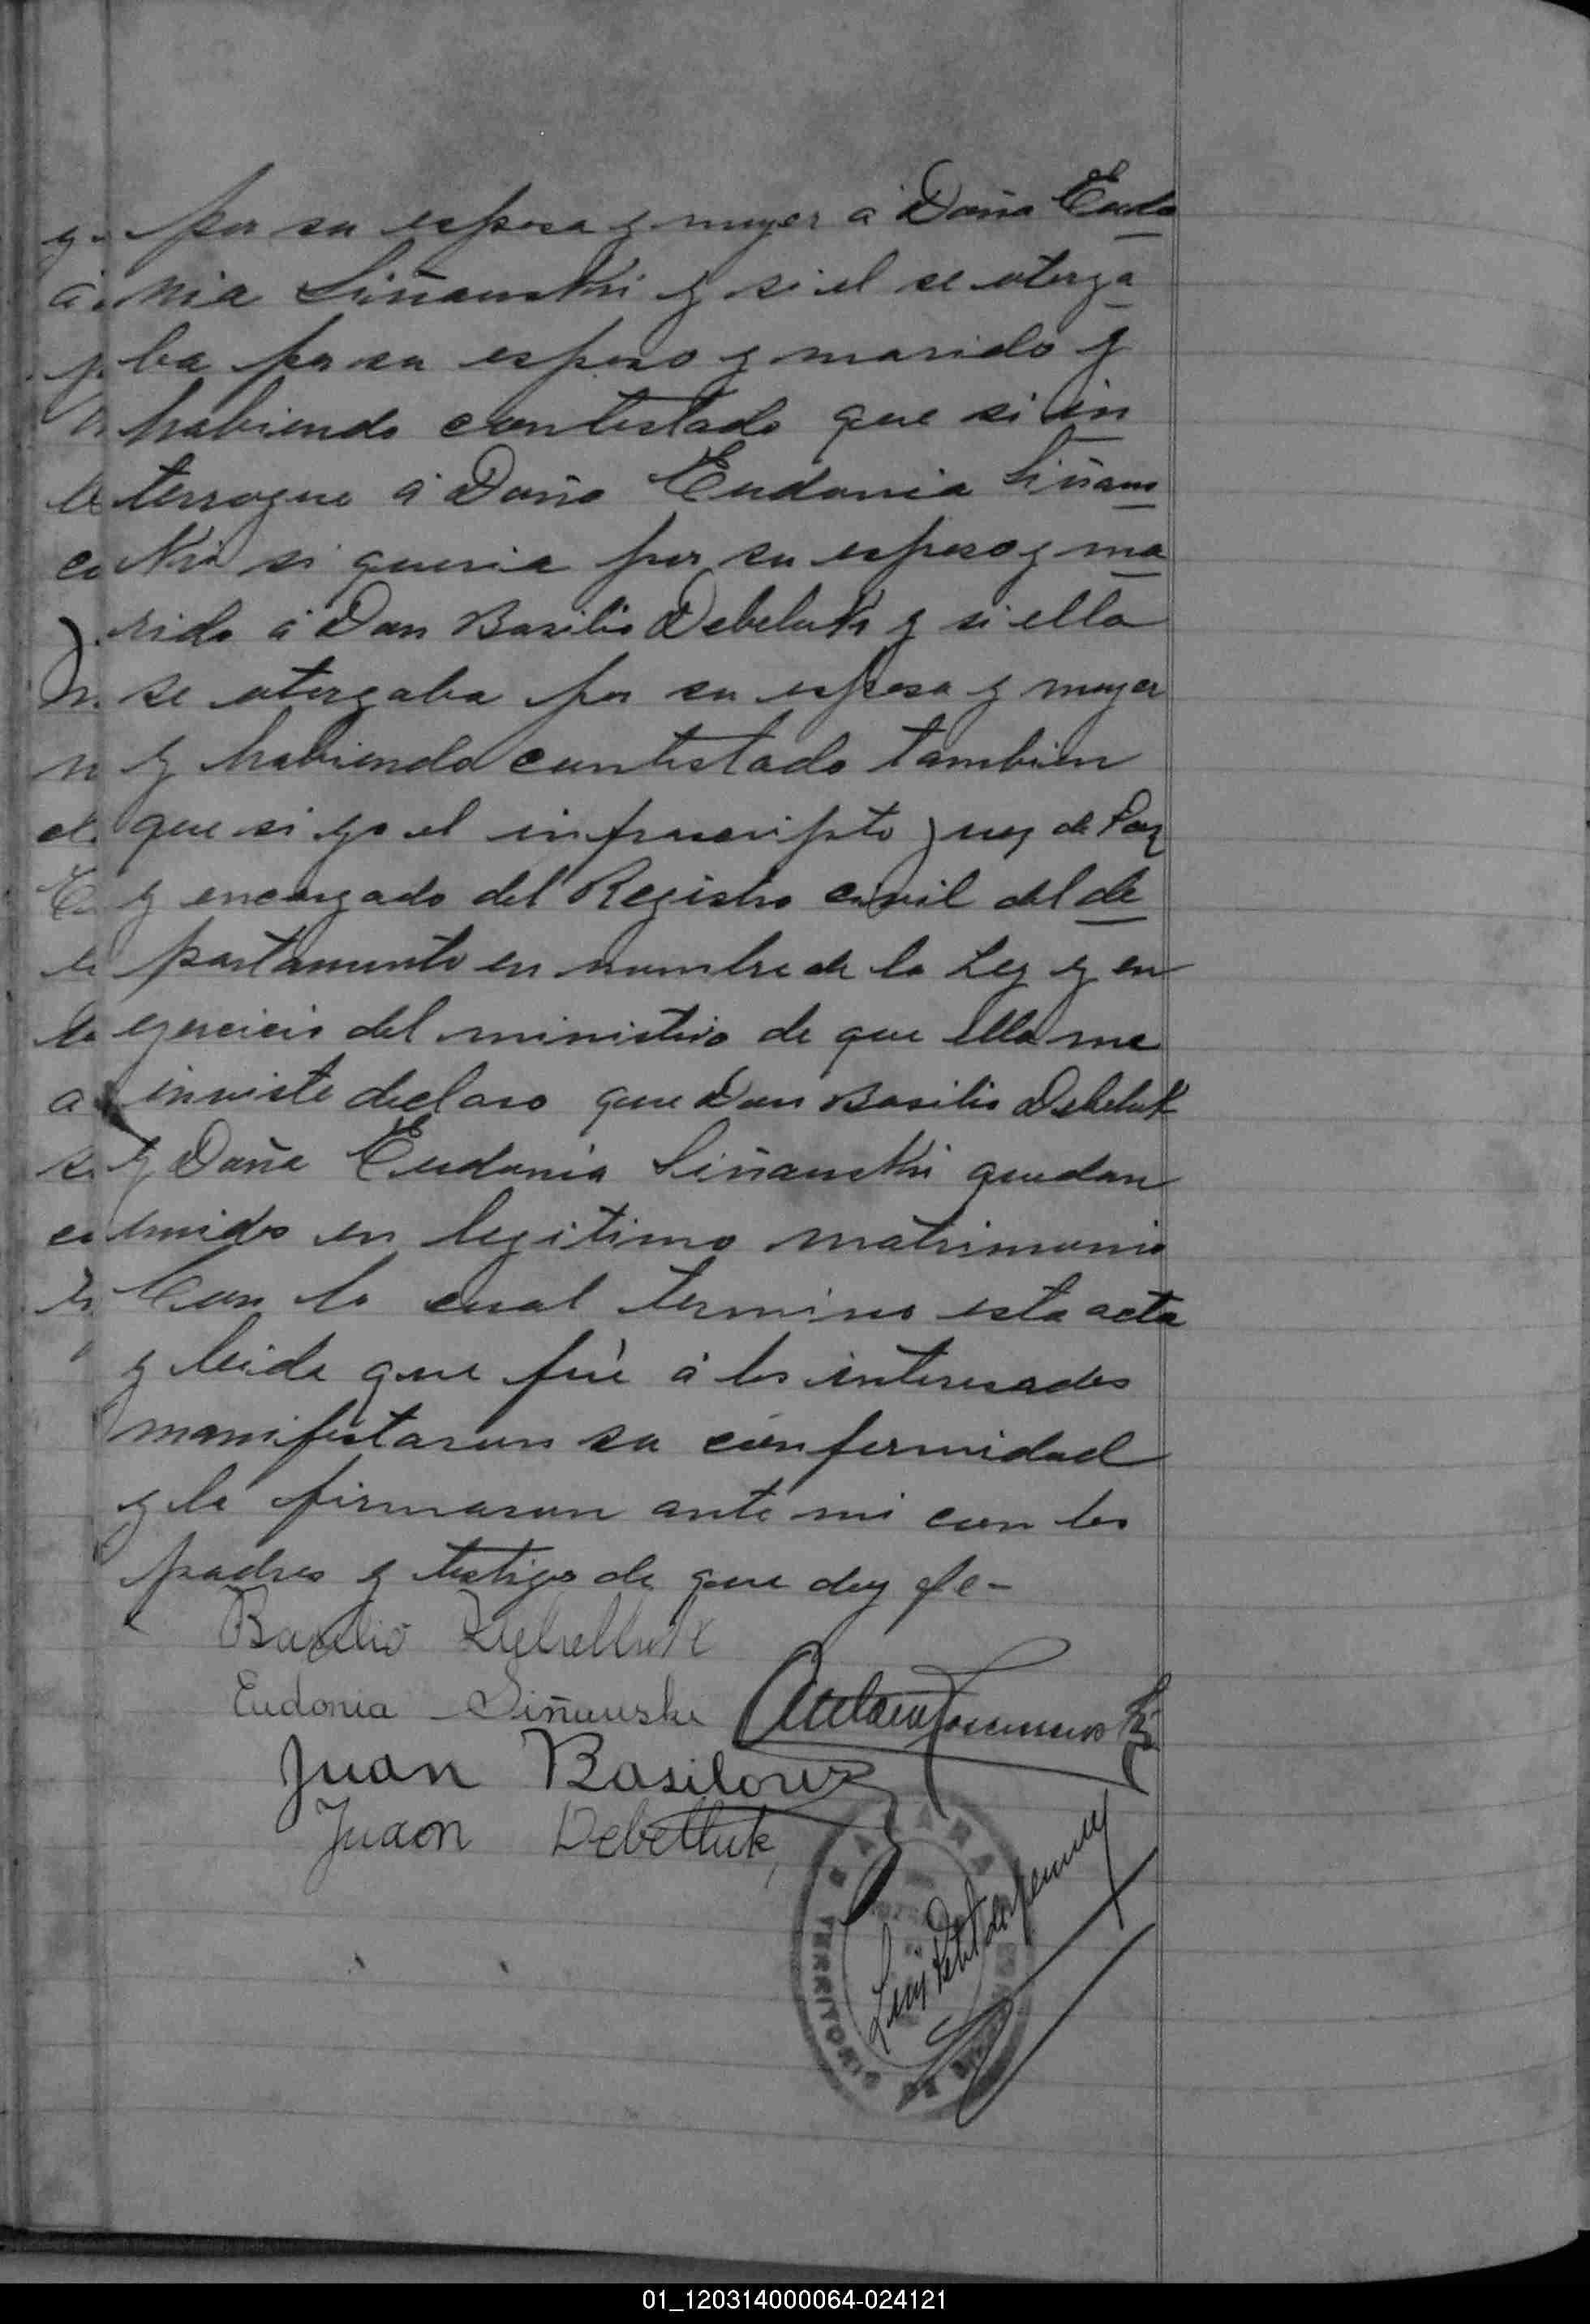 por su esposa y muger á Doña Eudo
nia Siñauski y si el se otorga
ba por su esposo y marido y
habiendo contestado que si in
terrogue á Doña Eudonia Siñaus
ki si queria por su esposo y ma
rido á Don Basilio Debeluk y si ella
se otorgaba por su esposa y muger
y habiendo contestado tambien
que si yo el infrascripto Juez de Paz
y encargado del Registro civil del de
partamento en nombre de la Ley y en
egercicio del ministerio de que ella me
inviste declaro que Don Basilio Debeluk
y Doña Eudonia Siñauski quedan
unidos en legitimo matrimonio
Con lo cual termino esta acta
y leida que fué á los interesados
manifestaron su conformidad
y la firmaron ante mi con los
padres y testigos de que doy fe-
Basilio Debelluk
Eudonia Siñauski
Juan Basiloviz
Juan Debelluk
TERRITORIO DE
01_120314000064-024121